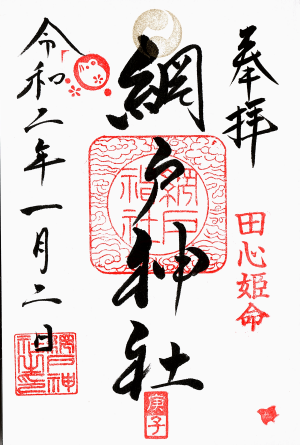 奉拝
田心姫命
網戸神社
網戸神社
庚子
令和二年一月二日
網戸神社之印